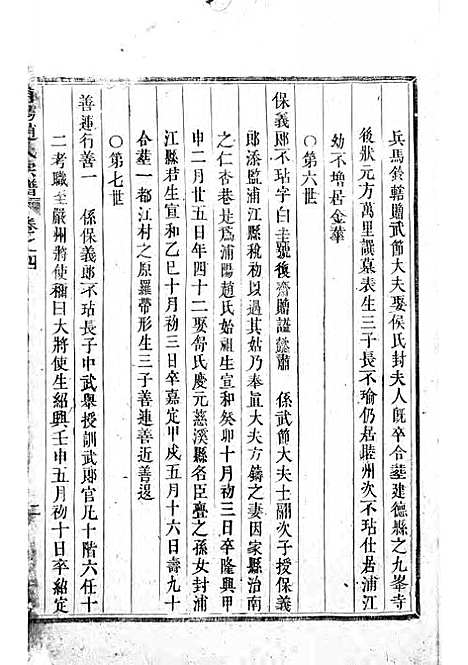 兵馬鈐轄贈武節大夫娶侯氏封夫人旣卒合塟建德縣之九峯寺
後狀元方萬里譔墓表生三子長不瑜仍居睦州次不玷仕居浦江
幼不增居金華
○第六世
保義郎不玷字白圭號後齋贈諡懿肅 係武節大夫士翮次子授保義
郎添監浦江縣稅初以過其姑乃奉直大夫方鑄之妻因家縣治南
之仁杏巷是爲浦陽趙氏始祖生宣和癸卯十月初三日卒隆興甲
申二月廿五日年四十二娶舒氏慶元慈溪縣名臣亶之孫女封浦
江縣君生宣和乙巳十月初三日卒嘉定甲戌五月十六日壽九十
合塟一都江村之原羅帶形生三子善連善近善遑
○第七世
善連行善一 係保義郎不玷長子中武舉授訓武郎官凡十階六任十
二考職至嚴州將使稱曰大將使生紹興壬申五月初十日卒紹定
趙氏宗譜
卷之四